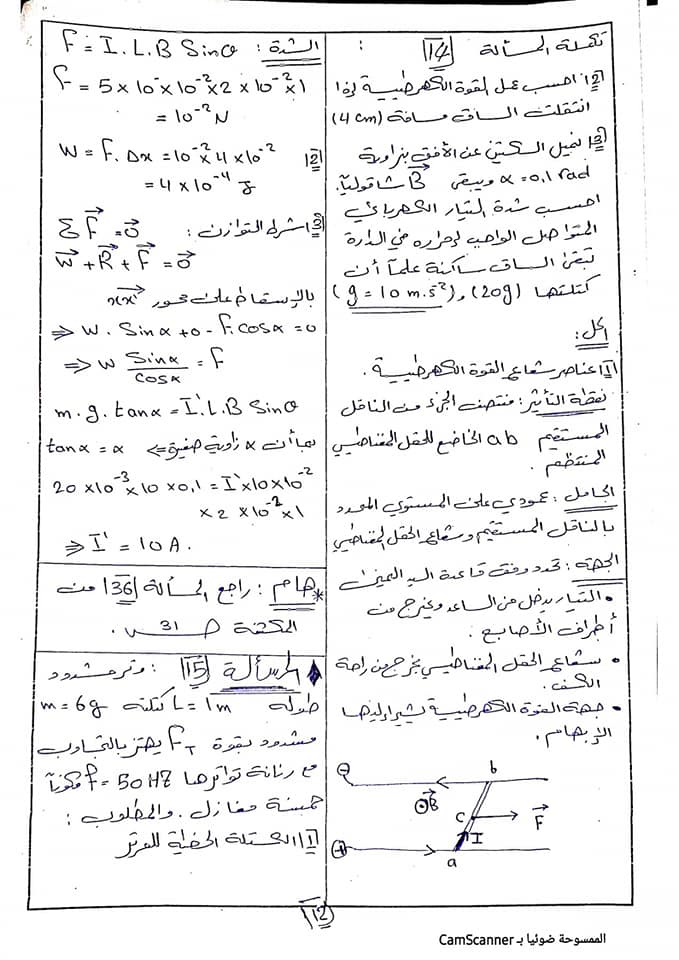 تكملة المسألة 14 :
2) احسب عمل القوة الكهرطيسية إذا
انتقلت الساق مسافة (4 cm)
3) نميل السكتين عن الأفق بزاوية
α = 0,1 rad ويبقى B شاقولياً.
احسب شدة التيار الكهربائي
المتواصل الواجب إمراره في الدارة
تبقى الساق ساكنة علماً أن
كتلتها (20g) و (g = 10 m.s²)
الحل:
1) عناصر شعاع القوة الكهرطيسية.
نقطة التأثير: منتصف الجزء من الناقل
المستقيم ab الخاضع للحقل المغناطيسي
المنتظم.
الحامل: عمودي على المستوي المحدد
بالناقل المستقيم وشعاع الحقل المغناطيسي
الجهة: تحدد وفق قاعدة اليد اليمنى
• التيار يدخل من الساعد ويخرج من
أطراف الأصابع.
• شعاع الحقل المغناطيسي يخرج من راحة
الكف.
• جهة القوة الكهرطيسية يشير إليها
الإبهام.
⊖ b
⊙B C F
I
⊕ a
الشدة: F = I.L.B Sinθ
F = 5 × 10 × 10⁻² × 2 × 10⁻² × 1
= 10⁻² N
2) W = F.Δx = 10⁻² × 4 × 10⁻²
= 4 × 10⁻⁴ J
3) شرط التوازن: ΣF = 0
W + R + F = 0
بالإسقاط على محور xx'
⇒ W. Sinα + 0 - F.cosα = 0
⇒ W Sinα/cosα = F
m.g.tanα = I'.L.B Sinθ
بما أن α زاوية صغيرة ⇐ tanα = α
20 × 10⁻³ × 10 × 0,1 = I' × 10 × 10⁻²
× 2 × 10⁻² × 1
⇒ I' = 10 A.
* هام: راجع المسألة 36 من
المكثفة صـ 31.
♦ المسألة 15: وتر مشدود
طوله L = 1m كتلته m = 6g
مشدود بقوة F_T يهتز بالتجاوب
مع رنانة تواترها f = 50 HZ مكوناً
خمسة مغازل. والمطلوب:
1) الكتلة الخطية للوتر
12
الممسوحة ضوئيا بـ CamScanner